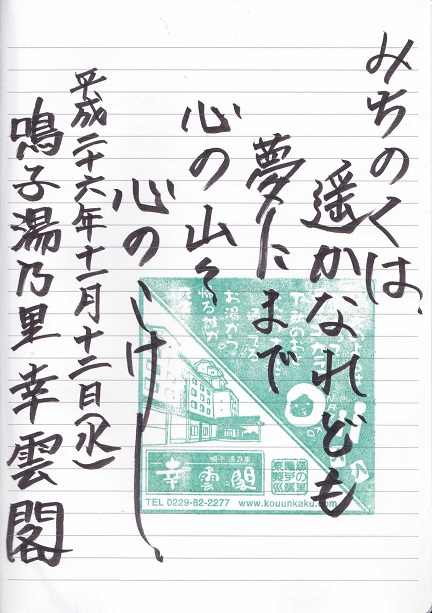 みちのくは
遥かなれども
夢にまで
心の山々
心のこけし
平成二十六年十一月十二日(水)
鳴子湯乃里 幸雲閣
鳴子 湯乃里
幸雲閣
TEL 0229-82-2277 www.kouunkaku.com